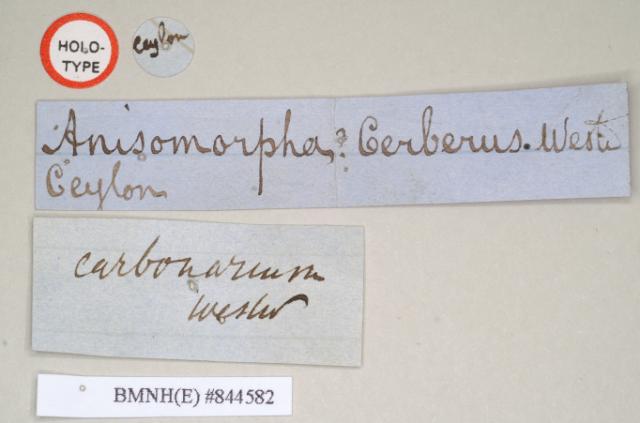 HOLO-
TYPE
Ceylon
Anisomorpha? Cerberus. Westw
Ceylon
carbonarium
Westw
BMNH(E) #844582